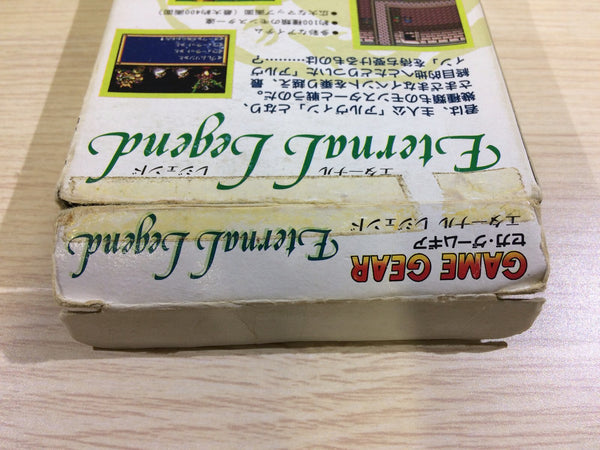 エターナル レジェンド
Eternal Legend
君は、主人公「アルヴィン」となり、
幾種類ものモンスターと戦うのだ。
さまざまなイベントを乗り越え、最
終目的地へたどりついた「アルヴ
ィン」を待ち受けるものは
……?
●多彩なアイテム
●約100種類のモンスター達
●広大なマップ画面(最大約400画面)
GAME GEAR
セガ・ゲームギア
エターナル レジェンド
Eternal Legend